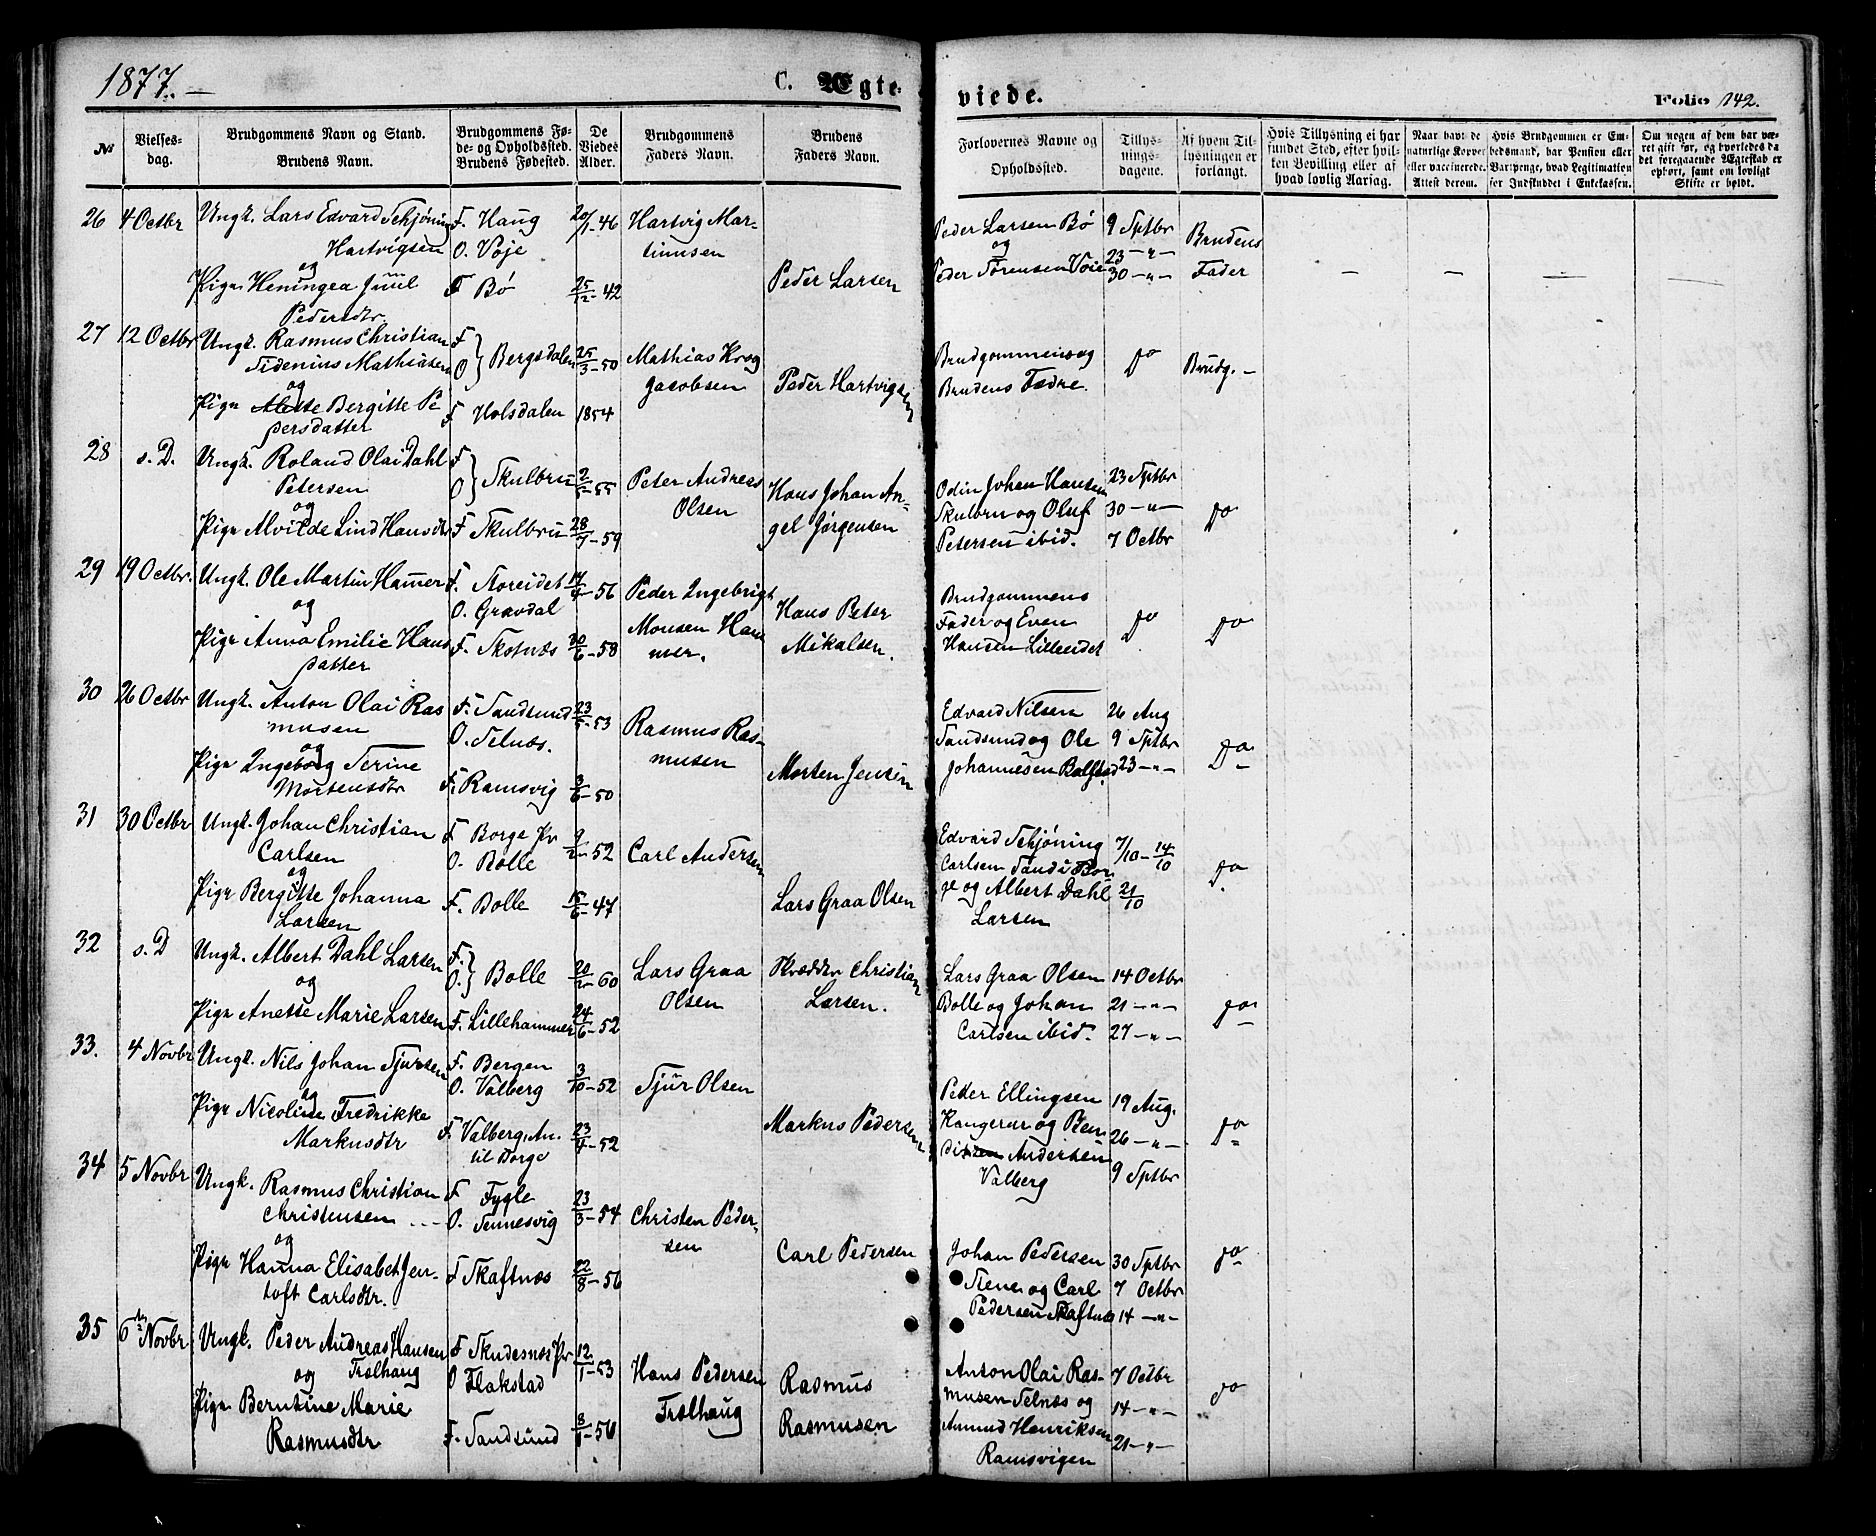 1877.—
C. Ægteviede.
Folio 142.
№
Vielsesdag.
Brudgommens Navn og Stand.
Brudens Navn.
Brudgommens Føde- og Opholdssted.
Brudens Fødested.
De Viedes Alder.
Brudgommens Faders Navn.
Brudens Faders Navn.
Forlovernes Navne og Opholdssted.
Tillysningsdagene.
Af hvem Tillysningen er forlangt.
Hvis Tillysning ei har fundet Sted, efter hvilken Bevilling eller af hvad lovlig Aarsag.
Naar havt de naturlige Kopper eller vaccinerede. Attest derom.
Hvis Brudgommen er Embedsmand, har Pension eller Vartpenge, hvad Legitimation for Indskuddet i Enkekassen.
Om nogen af dem har været gift før, og hvorledes da det foregaaende Ægteskab er ophørt, samt om lovligt Skifte er holdt.
26 4 Octbr Ungk. Lars Edvard Schjøning F. Haug 20/1-46 Hartvig Mar- Peder Larsen Bø 9 Sptbr Brudens
Hartvigsen O. Voje tinusen og 23 — " —
og Peder Sørensen Voie 30 — " — Fader — — — —
Pige Heningea Juul F Bø 25/12-42 Peder Larsen
Pedersdtr.
27 12 Octbr Ungk. Rasmus Christian F
Sidenius Mathiasen O } Bergsdalen 25/3-50 Mathias Krog Brudgommens og Do Brudg. —
og Jacobsen Peder Hartvigsen Brudens Fædre.
Pige Alette Bergitte Pe F Holsdalen 1854
dersdatter
28 s. D. Ungk. Roland Olai Dahl F
Petersen O } Skulbru 2/5-55 Peter Andreas Hans Johan An- Odin Johan Hansen 23 Sptbr
og Olsen gel Jørgensen Skulbru og Oluf 30 — " — Do
Pige Alvilde Lind Hansdtr F Skulbru 28/7-59 Petersen ibid. 7 Octbr
29 19 Octbr. Ungk. Ole Martin Hamer F. Storeidet 14/4-56 Peder Ingebrigt Hans Peter Brudgommens
og O. Gravdal Monsen Ham Mikalsen. Fader og Even Do Do
Pige Anna Emilie Hans F. Skotnæs 30/6-58 mer. Hansen Lilleeidet
datter
30 26 Octbr Ungk. Anton Olai Ras F. Sandsund 23/5-53 Rasmus Ras- Edvard Nilsen 26 Aug
musen O. Selnæs. musen Sandsund og Ole 9 Sptbr Do
og
Pige Ingeborg Serine F. Ramsvig 3/6-50 Morten Jensen Johannesen Bolstad 23 — " —
Mortensdtr
31 30 Octbr Ungk. Johan Christian F Borge Pr 9/2-52 Carl Andersen Edvard Schjøning 7/10-14/10
Carlsen O. Bolle Carlsen Sand i Bor Do
og
Pige Bergitte Johanna F. Bolle 15/6-47 Lars Graa Olsen ge og Albert Dahl 21/10
Larsen Larsen
32 s. D Ungk. Albert Dahl Larsen F.
og O. } Bolle 20/2-60 Lars Graa Skrædder Christian Lars Graa Olsen 14 Octbr
Olsen Larsen. Bolle og Johan 21 — " — Do
Pige Anette Marie Larsen F. Lillehammer 24/6-52 Carlsen ibid. 27 — " —
33. 4 Novbr Ungk. Nils Johan Tjursen F. Bergen 3/10-52 Tjur Olsen
og O. Valberg Peder Ellingsen 19 Aug.
Pige Nicoline Fredrikke F. Valberg, An. 23/4-52 Markus Pedersen Kangerur og Ben 26 — " — Do
Markusdtr til Borge dixen Andersen
Valberg 9 Sptbr
34 5 Novbr Ungk. Rasmus Christian F Fygle 23/3-54 Christen Peder-
Christensen O. Sennesvig sen
og
Pige Hanna Elisabet Jen- F Skaftnæs 22/8-56 Carl Pedersen Johan Pedersen 30 Sptbr Do
toft Carlsdtr. Stene og Carl 7 Octbr
Pedersen Skaftnæs 14 — " —
35 6te Novbr Ungk. Peder Andreas Hansen F Skudesnæs Pr 12/1-53 Hans Pedersen Rasmus Anton Olai Ras- 7 Octbr
og Trælhaug O Flakstad Trælhaug Rasmusen musen Selnæs og 14 — " — Do
Pige Berntine Marie F. Sandsund 8/1-56 Amund Henriksen 21 — " —
Rasmusdtr Ramsvigen